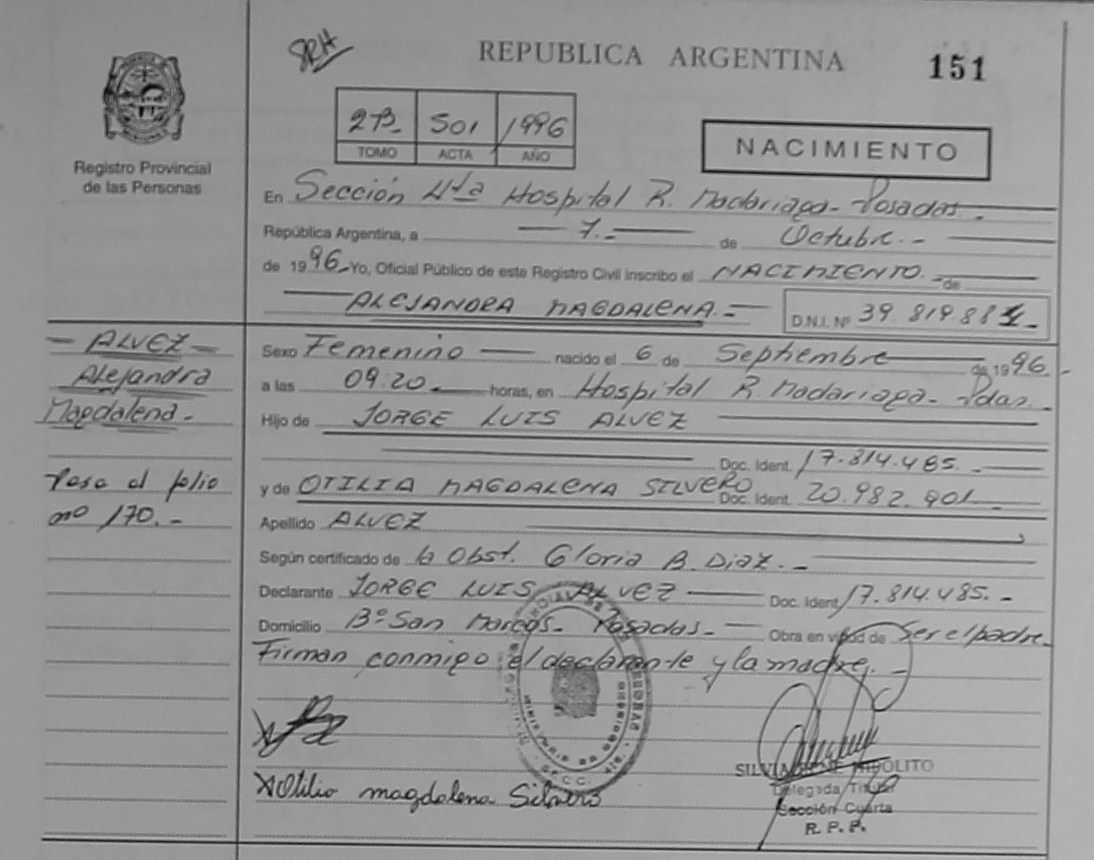 SRH
REPUBLICA ARGENTINA
151
2B- 501 1996
TOMO ACTA AÑO
NACIMIENTO
Registro Provincial
de las Personas
En Sección 4ta Hospital R. Madariaga - Posadas -
República Argentina, a 7.- de Octubre.-
de 1996- Yo, Oficial Público de este Registro Civil inscribo el NACIMIENTO.- de
ALEJANDRA MAGDALENA.- D.N.I. Nº 39.819.88
- ALVEZ -
Alejandra
Magdalena.-
Sexo Femenino nacido el 6 de Septiembre de 1996.-
a las 09:20 horas, en Hospital R. Madariaga - Pdas.
Hijo de JORGE LUIS ALVEZ
Doc. Ident. 17.814.485.-
Pasa al folio
nº 170.-
y de OTILIA MAGDALENA SILVERO Doc. Ident. 20.982.901
Apellido ALVEZ
Según certificado de la Obst. Gloria B. Diaz.-
Declarante JORGE LUIS ALVEZ Doc. Ident. 17.814.485.-
Domicilio Bº San Marcos - Posadas - Obra en virtud de Ser el padre
Firman conmigo el declarante y la madre.-
Otilia magdalena Silvero
SILVIA HIPOLITO
Delegada Titular
Sección Cuarta
R. P. P.